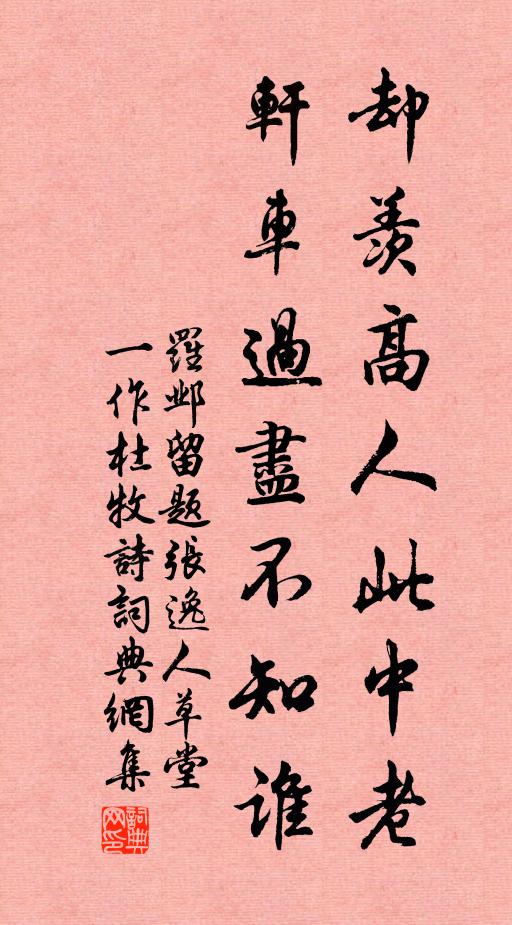 却羨高人此中老
軒車過盡不知誰
羅鄴留題張逸人草堂
一作杜牧詩詞典網集
詞典网印